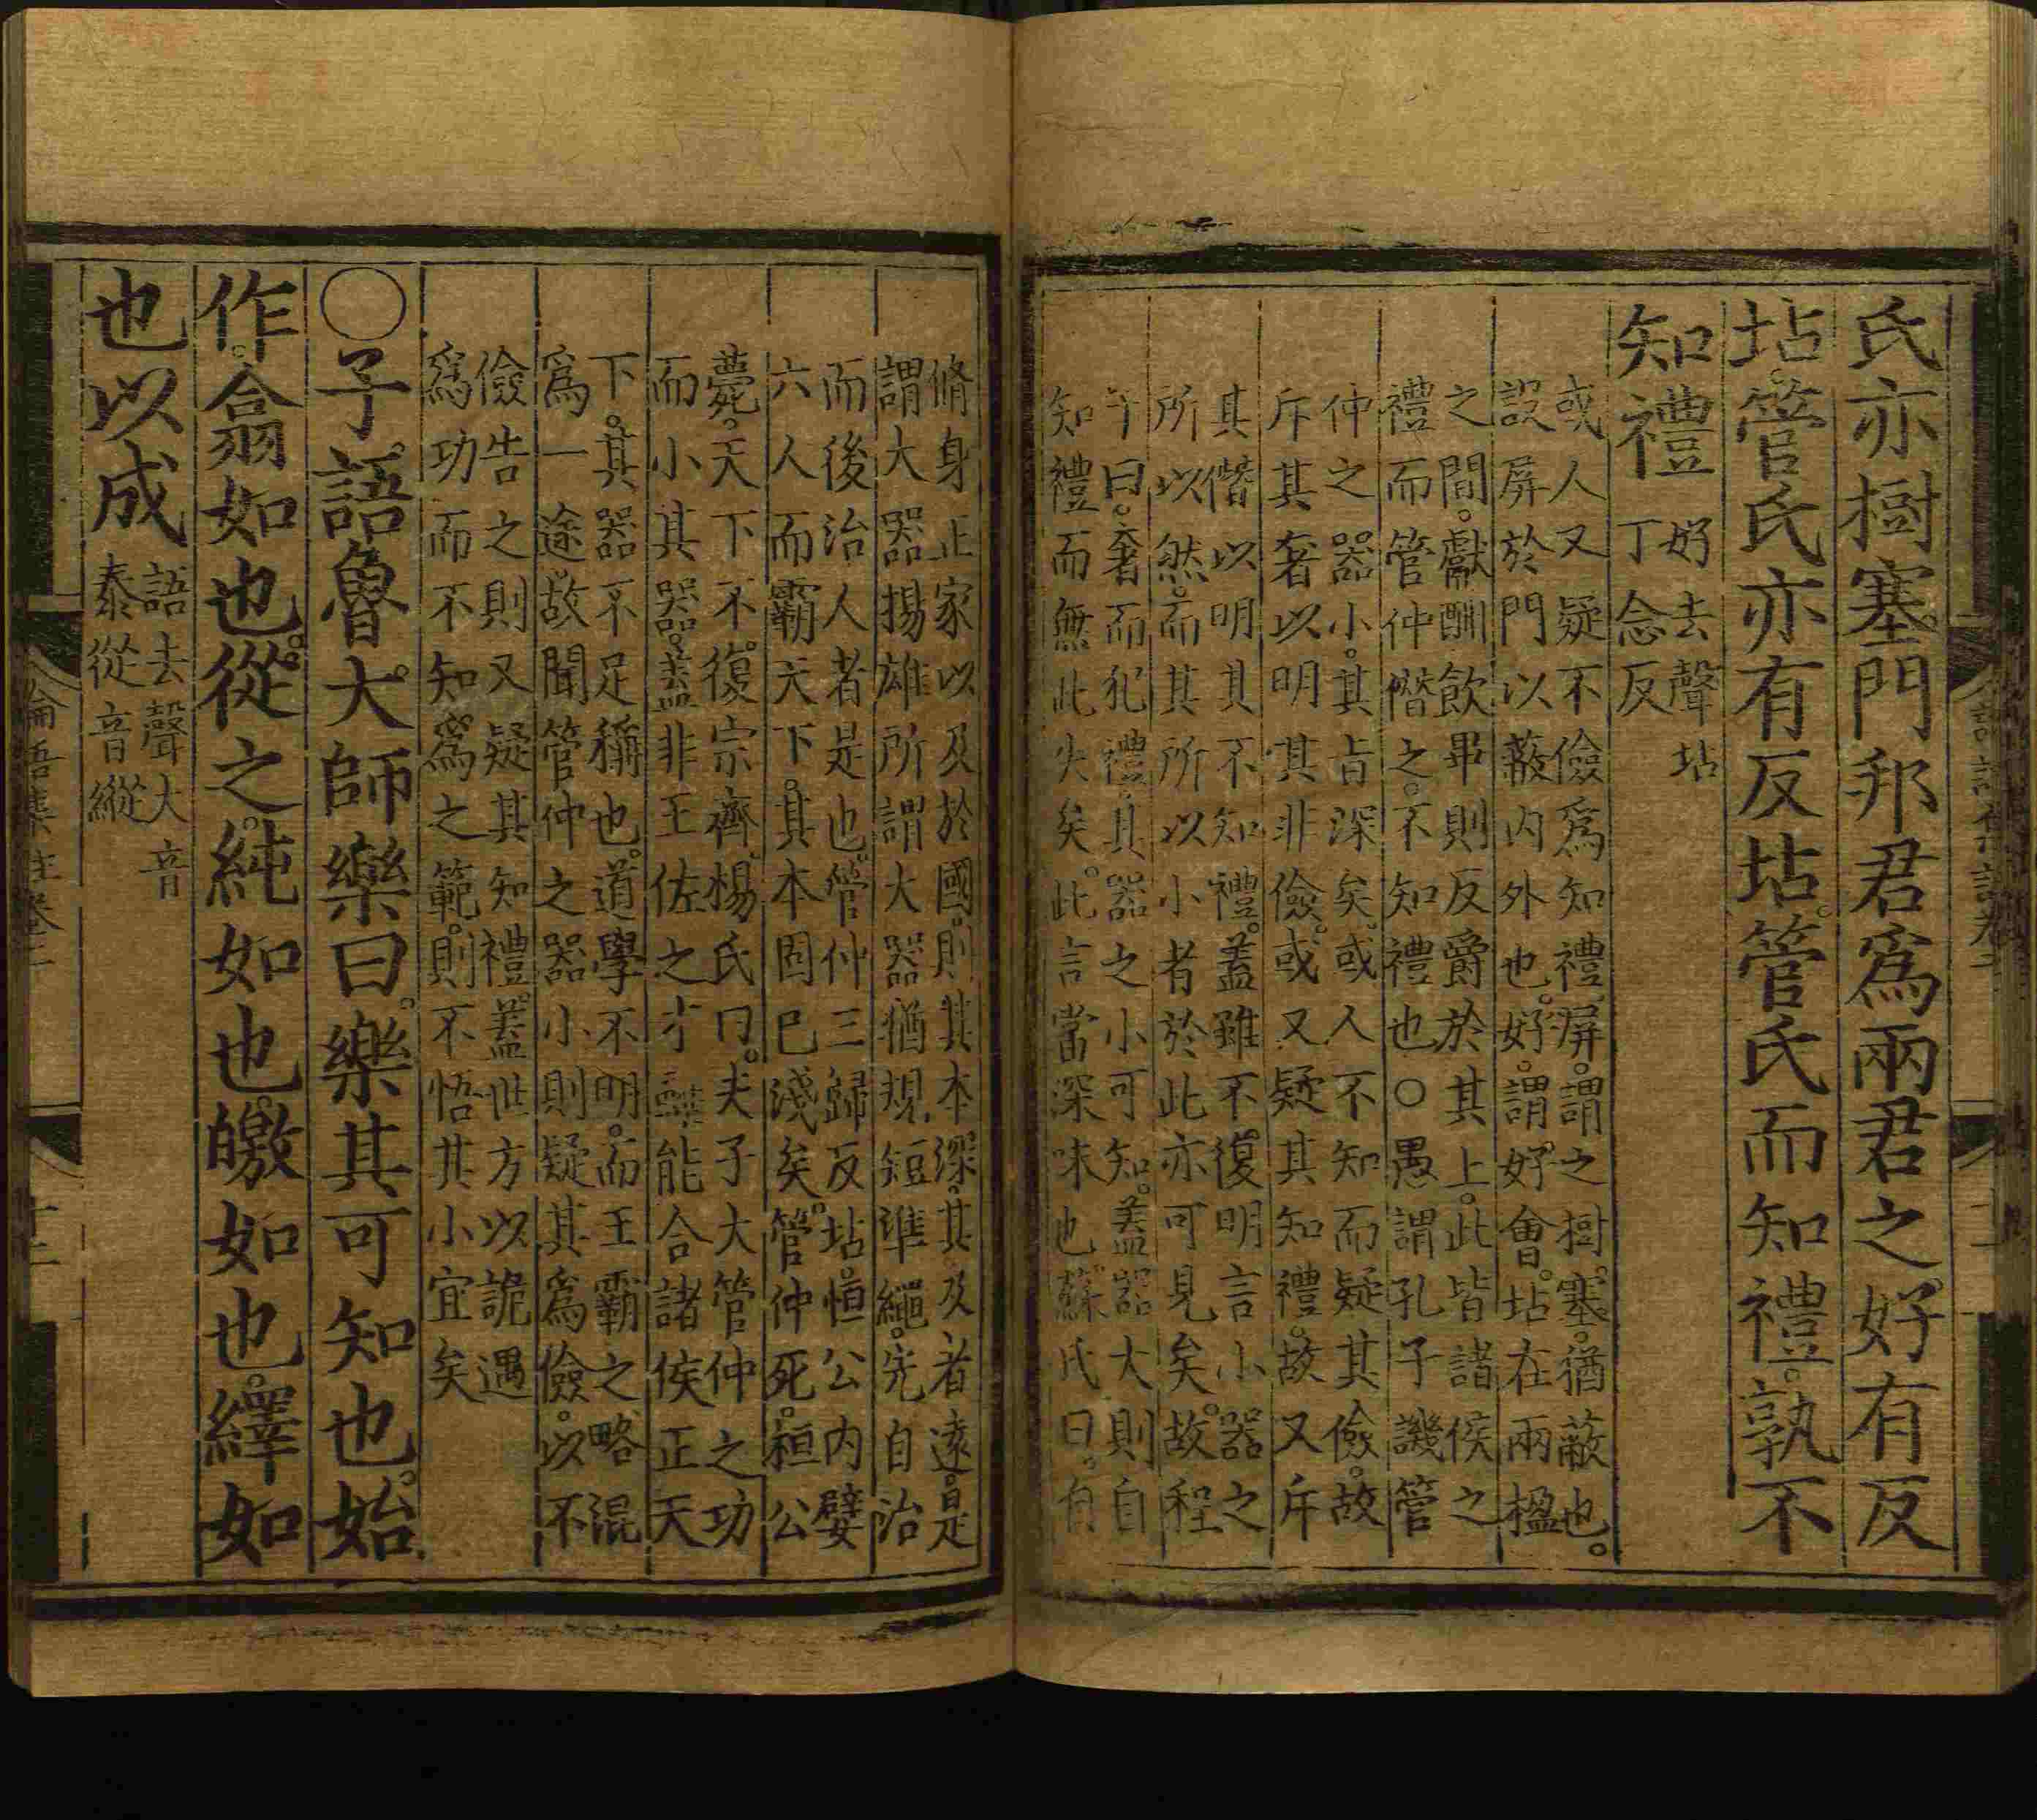 氏亦樹塞門邦君爲兩君之好有反
坫管氏亦有反坫管氏而知禮孰不
知禮 好去聲坫
丁念反
或人又疑不儉爲知禮屏謂之樹塞猶蔽也
設屏於門以蔽内外也好謂好會坫在兩楹
之間獻酬飲畢則反爵於其上此皆諸侯之
禮而管仲僭之不知禮也○愚謂孔子譏管
仲之器小其旨深矣或人不知而疑其儉故
斥其奢以明其非儉或又疑其知禮故又斥
其僭以明其不知禮蓋雖不復明言小器之
所以然而其所以小者於此亦可見矣故程
子曰奢而犯禮其器之小可知蓋器大則自
知禮而無此失矣此言當深味也蘇氏曰自
脩身正家以及於國則其本深其及者遠是
謂大器揚雄所謂大器猶規矩準繩先自治
而後治人者是也管仲三歸反坫桓公内嬖
六人而霸天下其本固已淺矣管仲死桓公
薨天下不復宗齊楊氏曰夫子大管仲之功
而小其器蓋非王佐之才雖能合諸侯正天
下其器不足稱也道學不明而王霸之略混
爲一途故聞管仲之器小則疑其爲儉以不
儉告之則又疑其知禮蓋世方以詭遇
爲功而不知爲之範則不悟其小宜矣
○子語魯大師樂曰樂其可知也始
作翕如也從之純如也皦如也繹如
也以成 語去聲大音
泰從音縱
論語集註卷二 十二